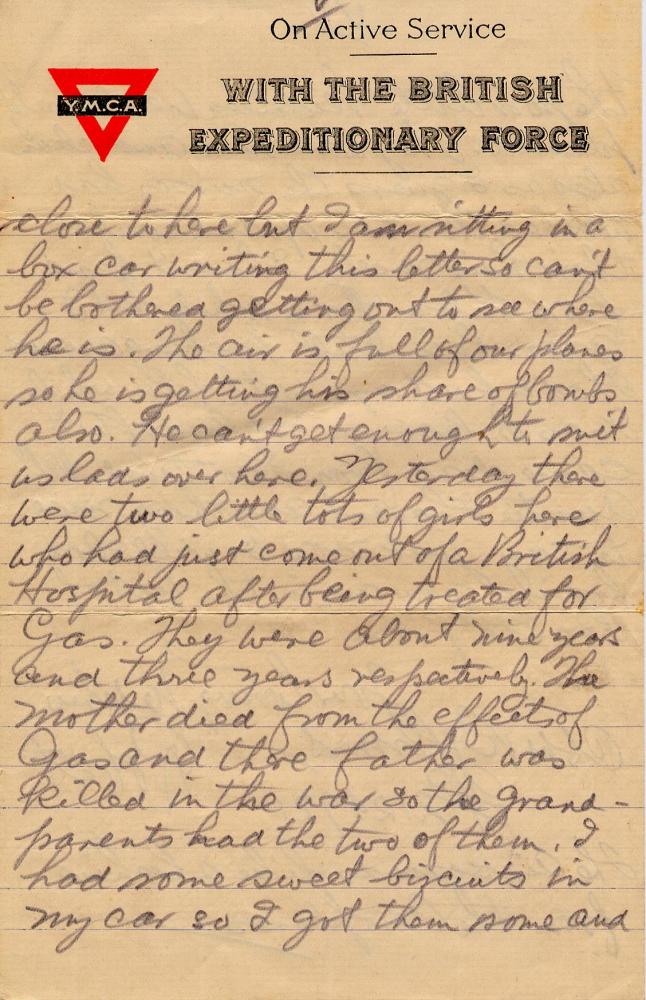 On Active Service
WITH THE BRITISH
EXPEDITIONARY FORCE
Y.M.C.A.
close to here but I am sitting in a
box car writing this letter so can't
be bothered getting out to see where
he is. The air is full of our planes
so he is getting his share of bombs
also. He can't get enough to suit
us lads over here. Yesterday there
were two little tots of girls here
who had just come out of a British
Hospital after being treated for
Gas. They were about nine years
and three years respectively. The
mother died from the effects of
Gas and there father was
killed in the war so the grand-
parents had the two of them. I
had some sweet biscuits in
my car so I got them some and